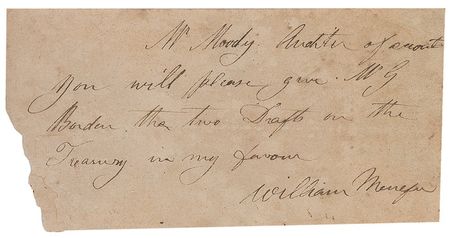 Mr Moody Auditer of
you will please give Mr G
Borden the two Drafts on the
Treasury in my favour
William Menefee